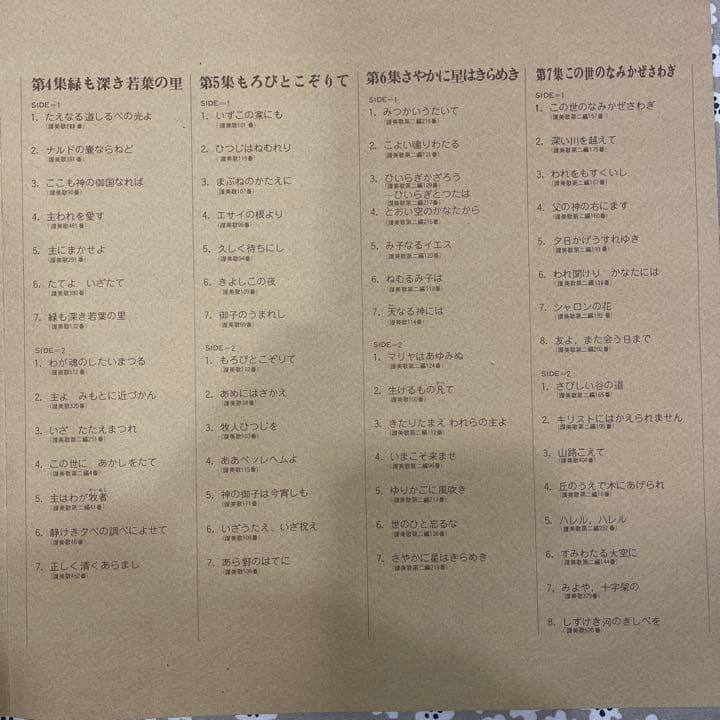 第4集緑も深き若葉の里
SIDE—1
1. たえなる道しるべの光よ
2. ナルドの壷ならねど
(讃美歌391番)
3. ここも神の御国なれば
(讃美歌90番)
4. 主われを愛す
(讃美歌461番)
5. 主にまかせよ
(讃美歌291番)
6. たてよ いざたて
(讃美歌380番)
7. 緑も深き若葉の里
(讃美歌122番)
SIDE—2
1. わが魂のしたいまつる
(讃美歌512番)
2. 主よ みもとに近づかん
(讃美歌320番)
3. いざ たたえまつれ
(讃美歌第二編251番)
4. この世に あかしをたて
(讃美歌第二編4番)
5. 主はわが牧者
(讃美歌第二編41番)
6. 静けき夕べの調べによせて
(讃美歌48番)
7. 正しく清くあらまし
(讃美歌452番)
第5集もろびとこぞりて
SIDE—1
1. いずこの家にも
(讃美歌101番)
2. ひつじはねむれり
(讃美歌119番)
3. まぶねのかたえに
(讃美歌107番)
4. エサイの根より
(讃美歌96番)
5. 久しく待ちにし
(讃美歌94番)
6. きよしこの夜
(讃美歌109番)
7. 御子のうまれし
SIDE—2
1. もろびとこぞりて
(讃美歌112番)
2. あめにはさかえ
(讃美歌98番)
3. 牧人ひつじを
(讃美歌103番)
4. ああベツレヘムよ
(讃美歌115番)
5. 神の御子は今宵しも
(讃美歌111番)
6. いざうたえ、いざ祝え
(讃美歌108番)
7. あら野のはてに
(讃美歌106番)
第6集さやかに星はきらめき
SIDE—1
1. みつかいうたいて
(讃美歌第二編216番)
2. こよい鳴りわたる
(讃美歌第二編121番)
3. ひいらぎかざろう
(讃美歌第二編129番)
～ひいらぎとつたは
(讃美歌第二編217番)
4. とおい空のかなたから
(讃美歌第二編215番)
5. み子なるイエス
(讃美歌第二編120番)
6. ねむるみ子は
(讃美歌第二編118番)
7. 天なる神には
(讃美歌114番)
SIDE—2
1. マリヤはあゆみぬ
(讃美歌第二編124番)
2. 生けるもの凡て
(讃美歌102番)
3. きたりたまえ われらの主よ
(讃美歌第二編112番)
4. いまこそ来ませ
(讃美歌第二編96番)
5. ゆりかごに風吹き
(讃美歌第二編213番)
6. 世のひと忘るな
(讃美歌第二編128番)
7. さやかに星はきらめき
(讃美歌第二編219番)
第7集この世のなみかぜさわぎ
SIDE—1
1. この世のなみかぜさわぎ
(讃美歌第二編157番)
2. 深い川を越えて
(讃美歌第二編175番)
3. われをもすくいし
(讃美歌第二編167番)
4. 父の神の右にます
(讃美歌第二編160番)
5. 夕日かげうすれゆき
(讃美歌第二編193番)
6. われ聞けり かなたには
7. シャロンの花
(讃美歌第二編192番)
8. 友よ, また会う日まで
(讃美歌第二編202番)
SIDE—2
1. さびしい谷の道
(讃美歌第二編165番)
2. キリストにはかえられません
(讃美歌第二編195番)
3. 山路こえて
(讃美歌404番)
4. 丘のうえで木にあげられ
5. ハレル, ハレル
6. すみわたる大空に
(讃美歌第二編144番)
7. みよや, 十字架の
(讃美歌379番)
8. しずけき河のきしべを
(讃美歌520番)